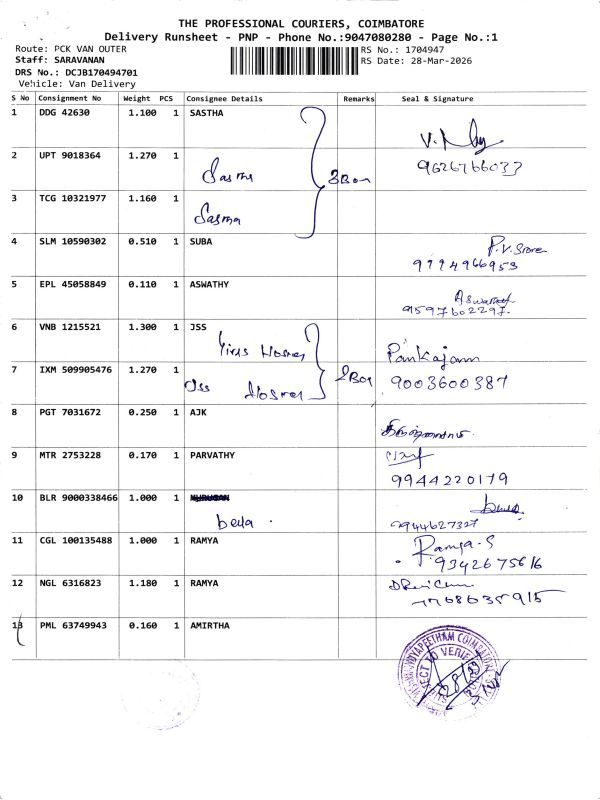 THE PROFESSIONAL COURIERS, COIMBATORE
Delivery Runsheet - PNP - Phone No.:9047080280 - Page No.:1
Route: PCK VAN OUTER
RS No.: 1704947
Staff: SARAVANAN
RS Date: 28-Mar-2026
DRS No.: DCJB170494701
Vehicle: Van Delivery
S No Consignment No Weight PCS Consignee Details Remarks Seal & Signature
1 DDG 42630 1.100 1 SASTHA
2 UPT 9018364 1.270 1
9626766033
3 TCG 10321977 1.160 1
4 SLM 10590302 0.510 1 SUBA
5 EPL 45058849 0.110 1 ASWATHY
9597602297
6 VNB 1215521 1.300 1 JSS
Pankajam
7 IXM 509905476 1.270 1
Jss 9003600387
8 PGT 7031672 0.250 1 AJK
9 MTR 2753228 0.170 1 PARVATHY
9944220179
10 BLR 9000338466 1.000 1 MURUGAN
9944627327
11 CGL 100135488 1.000 1 RAMYA Ramya-S
9342675616
12 NGL 6316823 1.180 1 RAMYA
13 PML 63749943 0.160 1 AMIRTHA